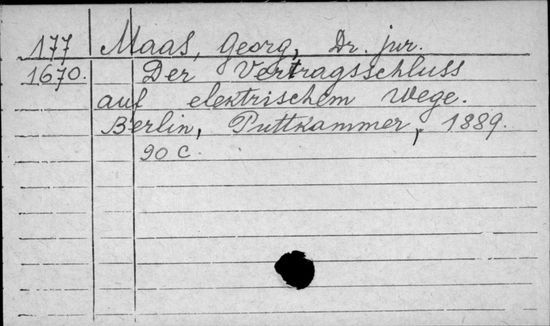 177 Maas, Georg, Dr. jur.
1670. Der Vertragsschluss
auf elektrischem Wege.
Berlin, Puttkammer, 1889.
90 C.